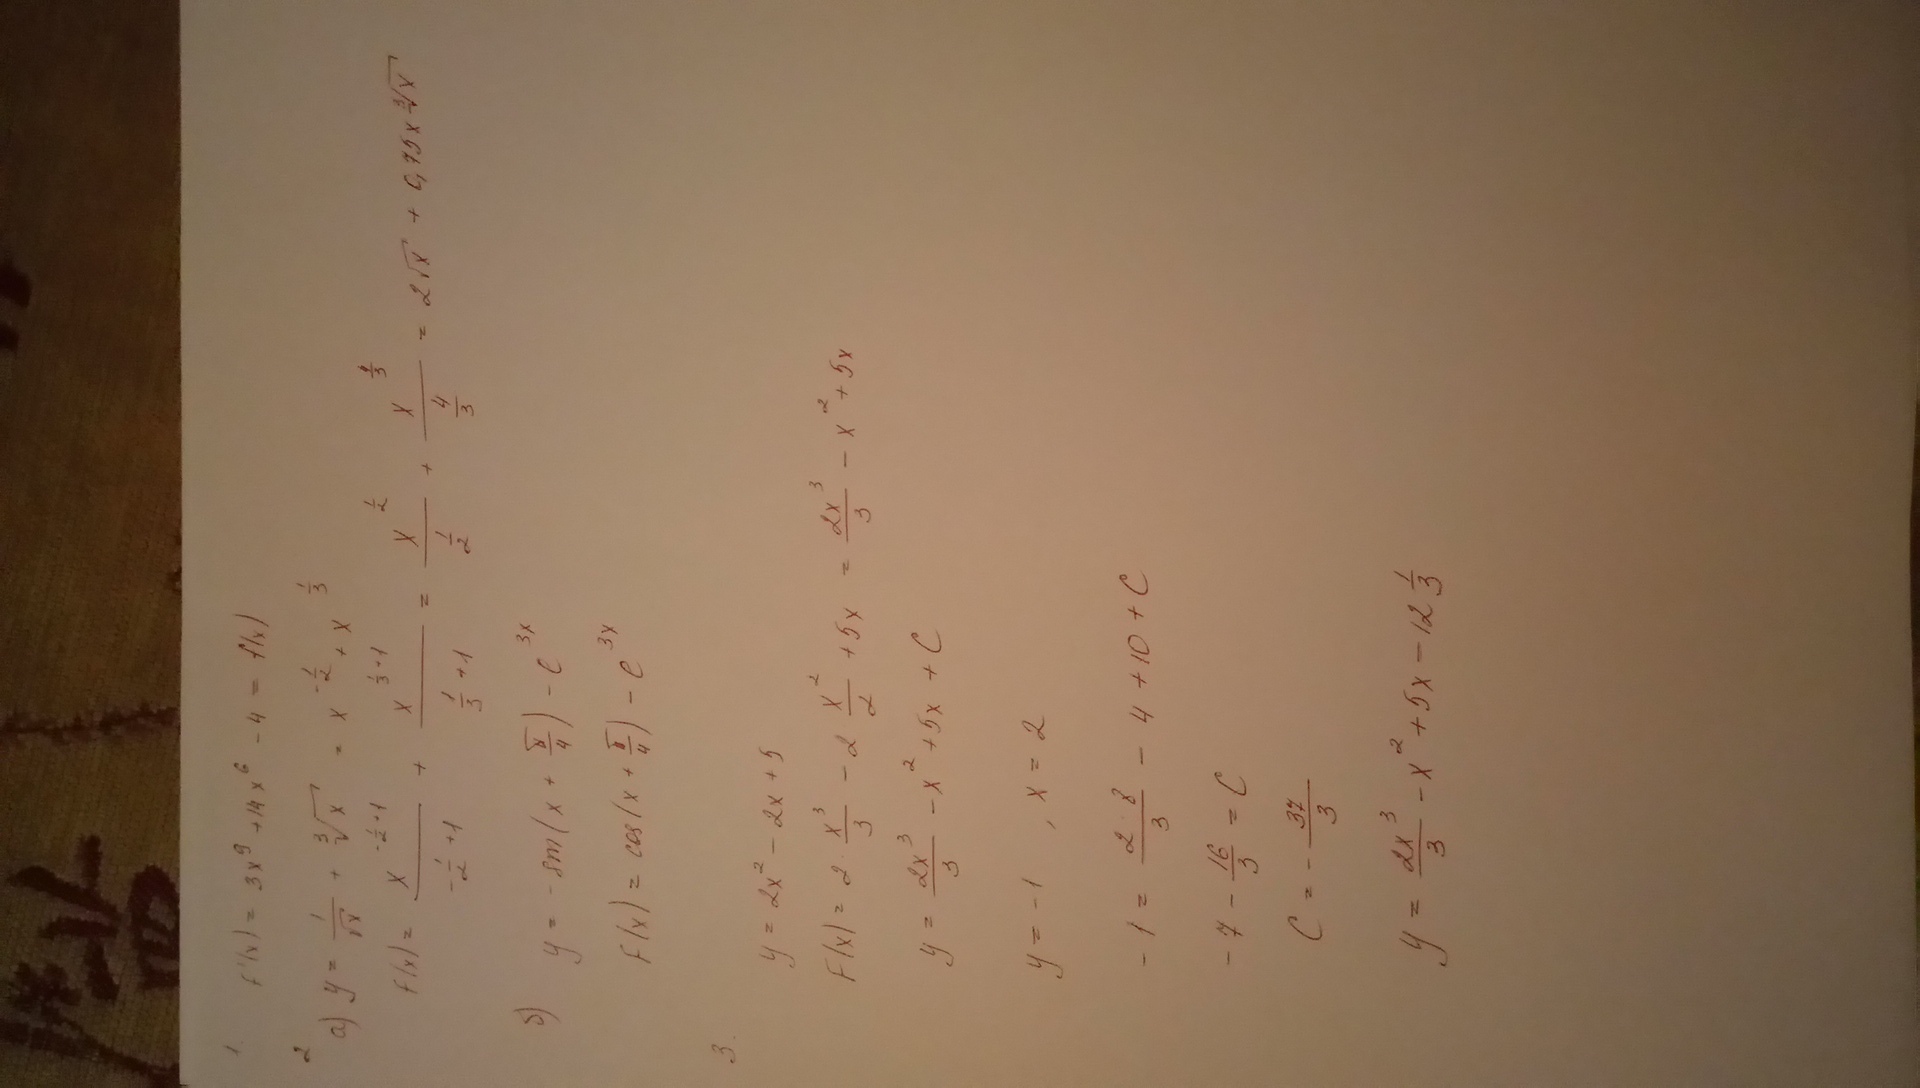 1. F'(x) = 3x⁹ + 14x⁶ - 4 = f(x)
2
а) y = 1/√x + ∛x = x^(-1/2) + x^(1/3)
F(x) = x^(-1/2+1)/(-1/2+1) + x^(1/3+1)/(1/3+1) = x^(1/2)/(1/2) + x^(4/3)/(4/3) = 2√x + 0,75x∛x
б) y = -sin(x + π/4) - e^(3x)
F(x) = cos(x + π/4) - e^(3x)
3. y = 2x² - 2x + 5
F(x) = 2 · x³/3 - 2 x²/2 + 5x = 2x³/3 - x² + 5x
y = 2x³/3 - x² + 5x + C
y = -1, x = 2
-1 = 2·8/3 - 4 + 10 + C
-7 - 16/3 = C
C = - 37/3
y = 2x³/3 - x² + 5x - 12 1/3